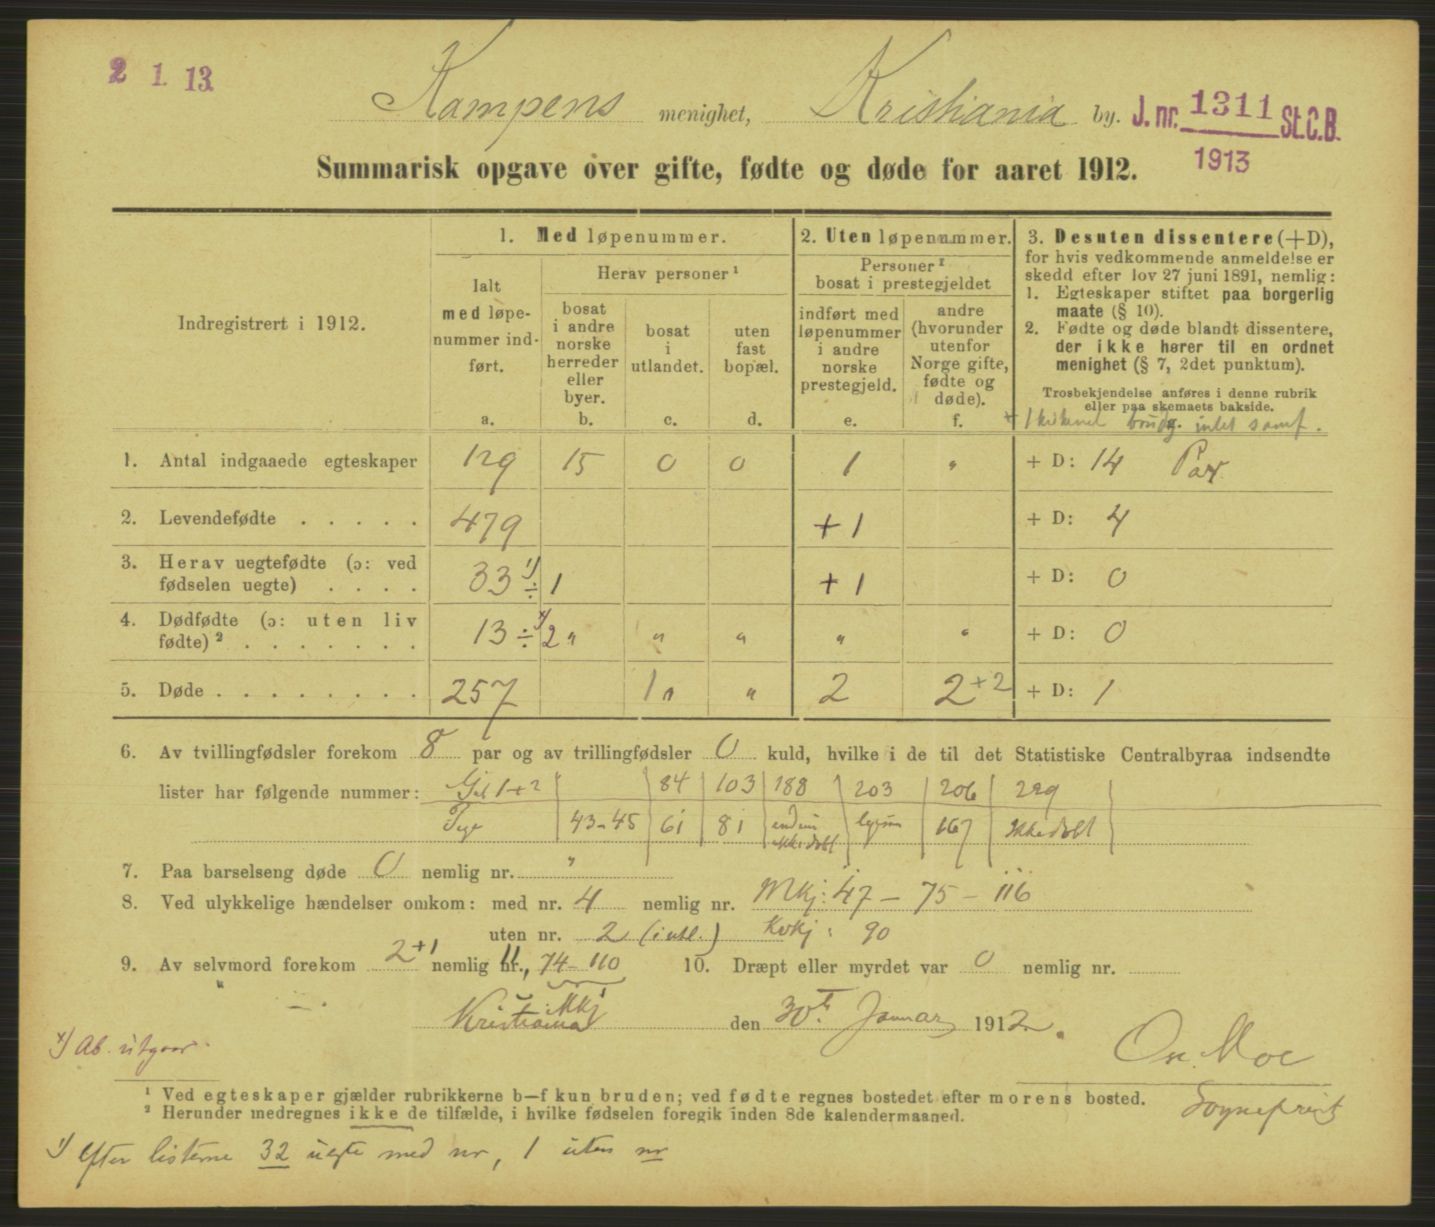 2 1. 13.
Kampens menighet, Kristiania by. J. nr. 1311 St.C.B.
1913
Summarisk opgave over gifte, fødte og døde for aaret 1912.
Indregistrert i 1912.
1. Med løpenummer.
Ialt med løpe-nummer ind-ført.
a.
Herav personer ¹
bosat i andre norske herreder eller byer.
b.
bosat i utlandet.
c.
uten fast bopæl.
d.
2. Uten løpenummer.
Personer ¹ bosat i prestegjeldet
indført med løpenummer i andre norske prestegjeld.
e.
andre (hvorunder utenfor Norge gifte, fødte og døde).
f.
3. Desuten dissentere (+D),
for hvis vedkommende anmeldelse er
skedd efter lov 27 juni 1891, nemlig:
1. Egteskaper stiftet paa borgerlig
maate (§ 10).
2. Fødte og døde blandt dissentere,
der ikke hører til en ordnet
menighet (§ 7, 2det punktum).
Trosbekjendelse anføres i denne rubrik
eller paa skemaets bakside.
1. Antal indgaaede egteskaper 129 15 0 0 1 " + D: 14 Par
2. Levendefødte . . . . . 479 + 1 + D: 4
3. Herav uegtefødte (ɔ: ved
fødselen uegte) . . . . 33 ¹) ÷ 1 + 1 + D: 0
4. Dødfødte (ɔ: uten liv
fødte) ² . . . . . . . 13 ÷ ˣ) 2 " " " " " + D: 0
5. Døde . . . . . . . . 257 1 " " 2 2 +2 + D: 1
6. Av tvillingfødsler forekom 8 par og av trillingfødsler 0 kuld, hvilke i de til det Statistiske Centralbyraa indsendte
lister har følgende nummer: 1+2 84 103 188 203 206 229
43-45 61 81 167 ikke døbt
7. Paa barselseng døde 0 nemlig nr. "
8. Ved ulykkelige hændelser omkom: med nr. 4 nemlig nr. Mkj: 47 - 75 - 116
uten nr. 2 (iutl.) Kvkj: 90
9. Av selvmord forekom 2 +1 nemlig nr. 11, 74-110 10. Dræpt eller myrdet var 0 nemlig nr.
" — . Mkj
Kristiania den 30te Januar 1912.
x) Ab. utgaar.
Moe
Sogneprest
¹ Ved egteskaper gjælder rubrikkerne b—f kun bruden; ved fødte regnes bostedet efter morens bosted.
² Herunder medregnes ikke de tilfælde, i hvilke fødselen foregik inden 8de kalendermaaned.
¹) Efter listerne 32 uegte med nr, 1 uten nr